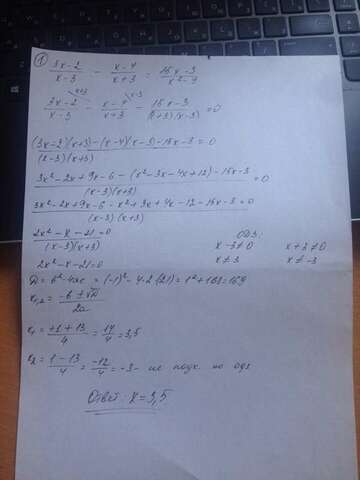 ① (3x-2)/(x-3) - (x-4)/(x+3) = (15x-3)/(x²-9)
(3x-2)/(x-3) - (x-4)/(x+3) - (15x-3)/((x+3)(x-3)) = 0
((3x-2)(x+3)-(x-4)(x-3)-15x-3)/((x-3)(x+3)) = 0
(3x²-2x+9x-6-(x²-3x-4x+12)-15x-3)/((x-3)(x+3)) = 0
(3x²-2x+9x-6-x²+3x+4x-12-15x-3)/((x-3)(x+3)) = 0
(2x²-x-21)/((x-3)(x+3)) = 0
ОДЗ:
x-3≠0 x+3≠0
x≠3 x≠-3
2x²-x-21=0
D=b²-4ac=(-1)²-4·2·(21)=1²+168=169
x₁,₂=(-b±√D)/2a
x₁=(+1+13)/4=14/4=3,5
x₂=(1-13)/4=-12/4=-3- не подх. по одз
Ответ: x=3,5